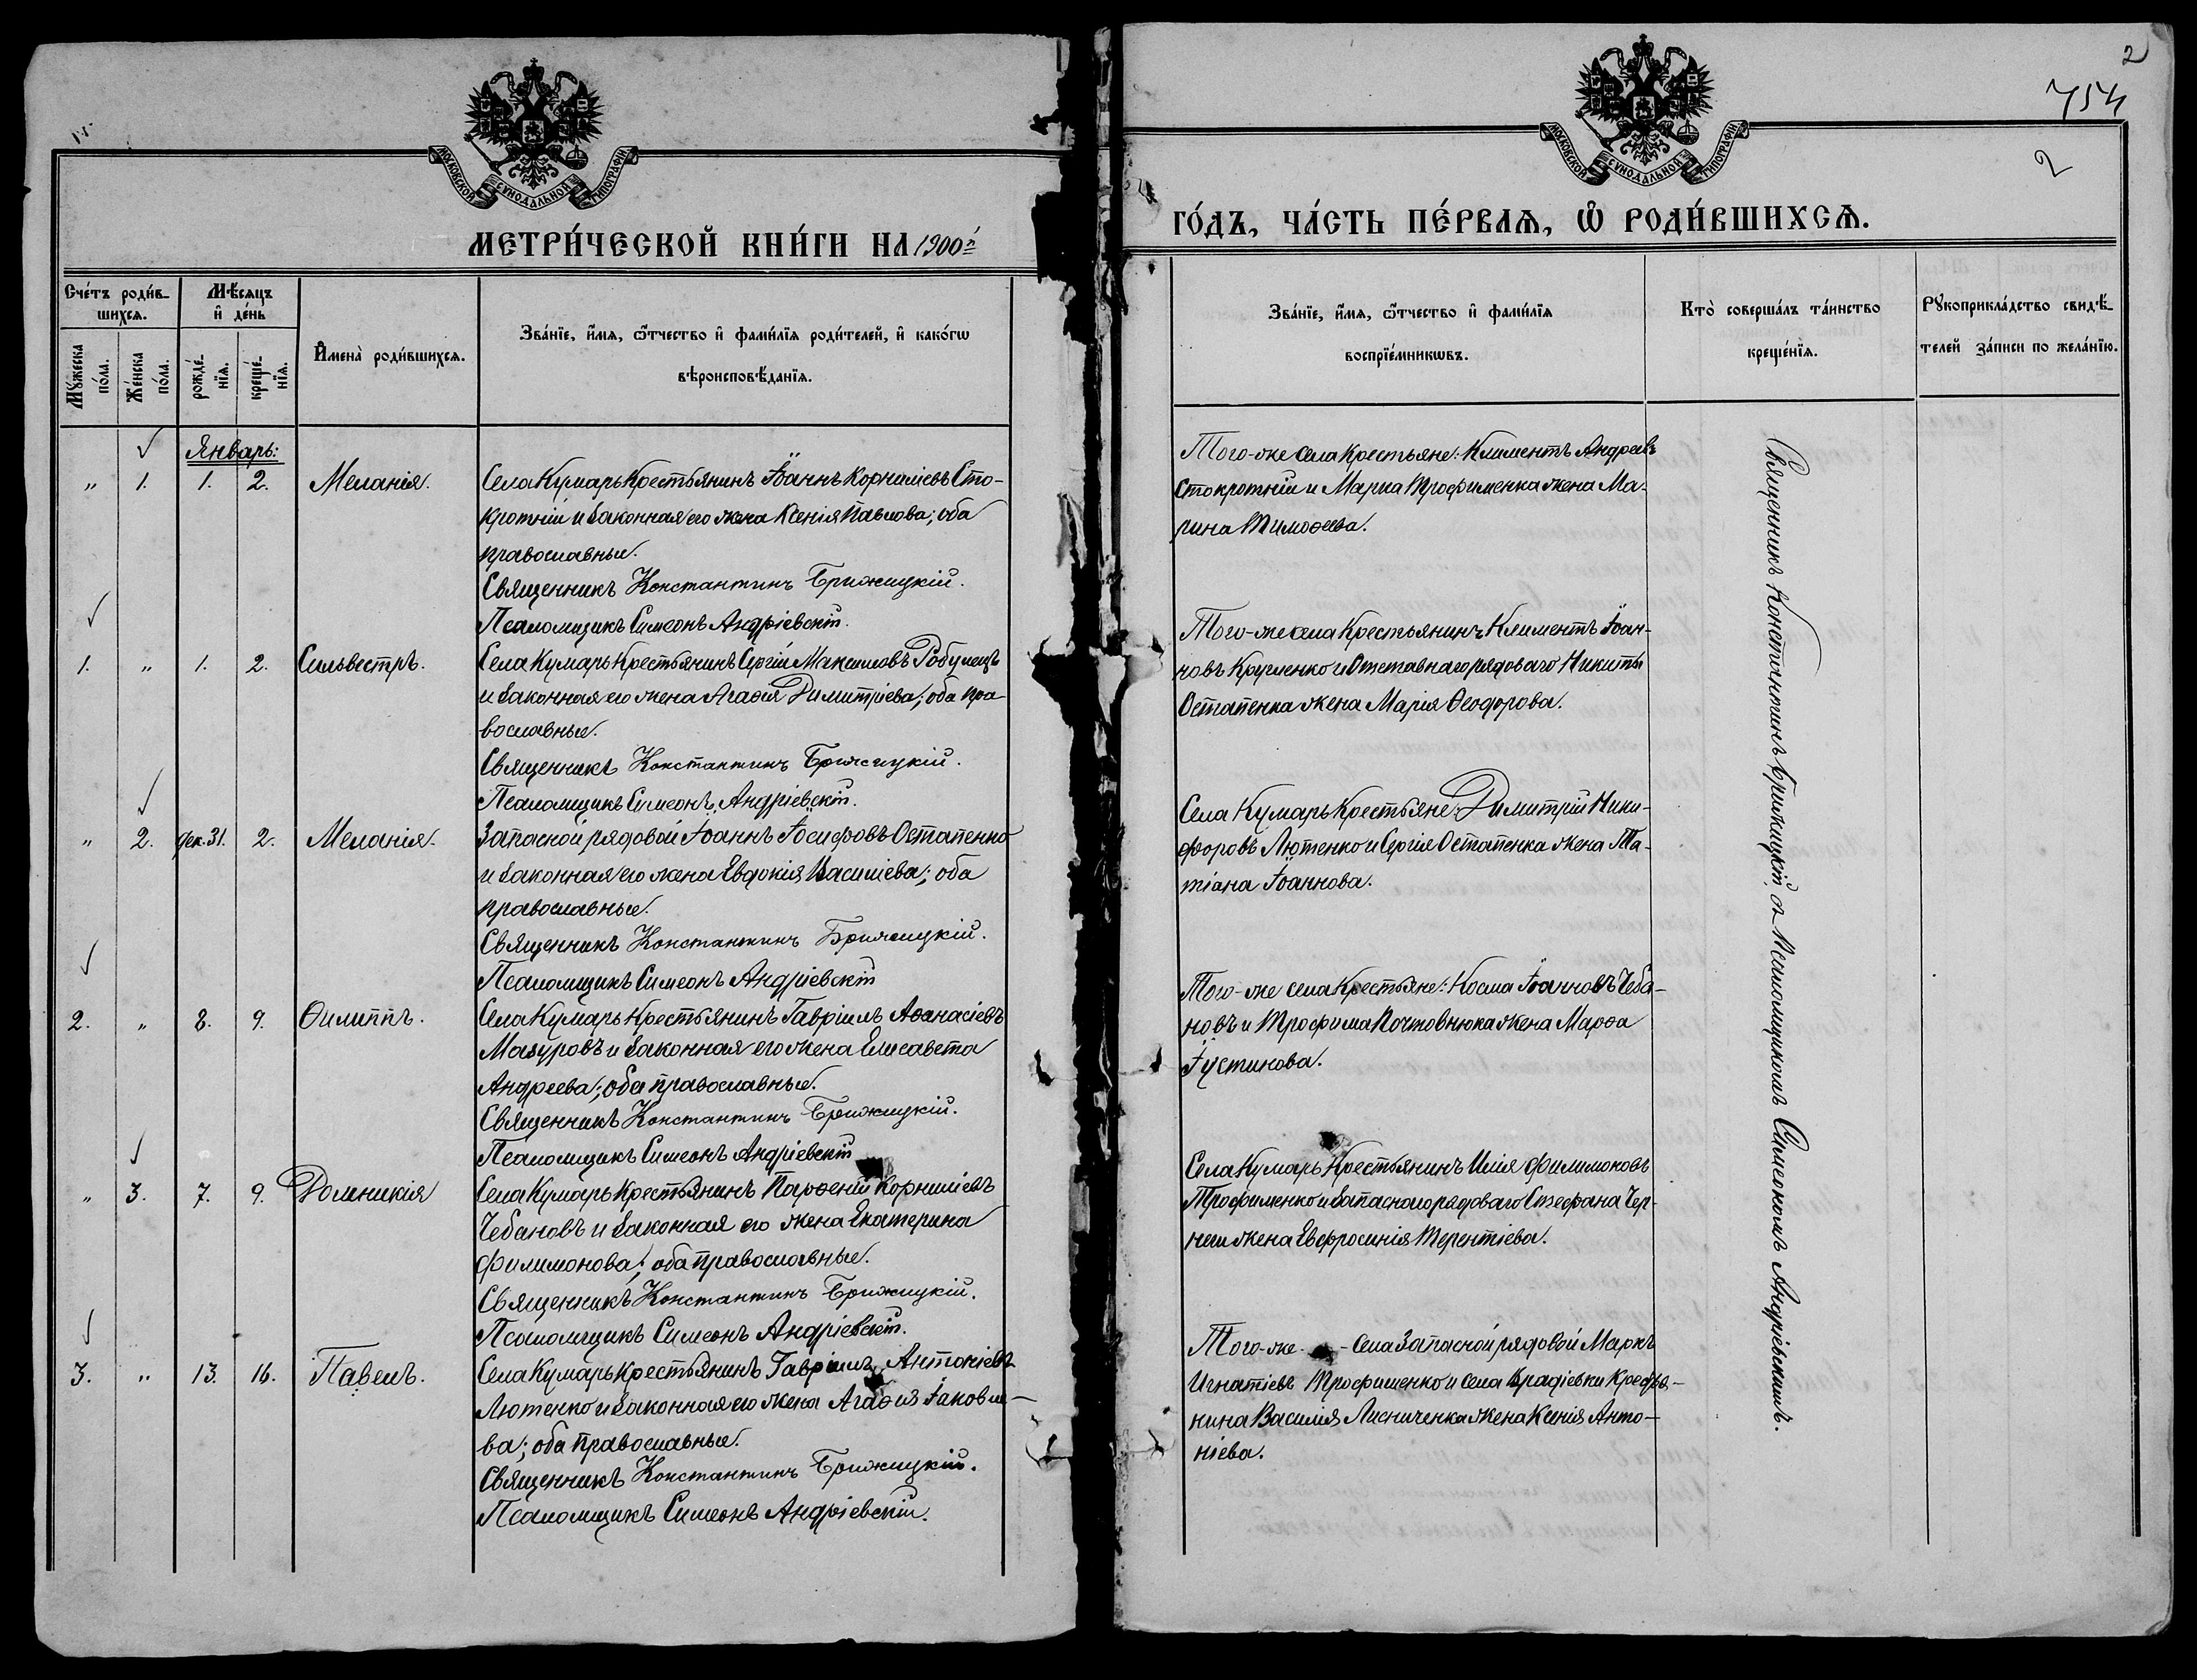 2
754
2
МОСКОВСКОЙ СѴНОДАЛЬНОЙ ТИПОГРАФІИ
МОСКОВСКОЙ СѴНОДАЛЬНОЙ ТИПОГРАФІИ
МЕТРИ́ЧЕСКОЙ КНИ́ГИ НА 1900й
ГО́ДЪ, ЧА́СТЬ ПЕ́РВАѦ, Ѡ҆ РОДИ́ВШИХСѦ.
Сче́тъ роди́в-
шихсѧ.
Мѣ́сѧцъ
и҆ де́нь
И҆мена̀ роди́вшихсѧ.
Зва́нїе, и҆́мѧ, ѻ҆́тчество и҆ фами́лїѧ роди́телей, и҆ како́гѡ
вѣроисповѣ́данїѧ.
Мꙋ́жеска
по́ла.
Же́нска
по́ла.
рожде́-
нїѧ.
креще́-
нїѧ.
Зва́нїе, и҆́мѧ, ѻ҆́тчество и҆ фами́лїѧ
воспрїе́мникѡвъ.
Кто̀ соверша́лъ та́инство
креще́нїѧ.
Рꙋкоприкла́дство свидѣ́-
телей за́писи по жела́нїю.
Январь:
„ 1. 1. 2. Меланія.
Села Кумарь Крестьянинъ Іоаннъ Корниліевъ Сто-
кротній и законная его жена Ксенія Павлова; оба
православные.
Священникъ Константинъ Брижицкій.
Псаломщикъ Симеонъ Андріевскій.
Того-же села Крестьяне: Климентъ Андреевъ
Стокротній и Марка Трофименка жена Ма-
рина Тимоѳеева.
1. „ 1. 2. Сильвестръ.
Села Кумарь Крестьянинъ Сергій Максимовъ Робулецъ
и законная его жена Агаѳія Димитріева; оба пра-
вославные.
Священникъ Константинъ Брижицкій.
Псаломщикъ Симеонъ Андріевскій.
Того-же села Крестьянинъ Климентъ Іоан-
новъ Кругленко и Отставнаго рядоваго Никиты
Остапенка жена Марія Ѳеодорова.
„ 2. дек. 31. 2. Меланія.
Запасной рядовой Іоаннъ Іосифовъ Остапенко
и законная его жена Евдокія Василіева; оба
православные.
Священникъ Константинъ Брижицкій.
Псаломщикъ Симеонъ Андріевскій
Села Кумарь Крестьяне: Димитрій Ники-
форовъ Лютенко и Сергія Остапенка жена Та-
тіана Іоаннова.
2. „ 8. 9. Филиппъ.
Села Кумарь Крестьянинъ Гавріилъ Аѳанасіевъ
Мазуровъ и законная его жена Елисавета
Андреева; оба православные.
Священникъ Константинъ Брижицкій.
Псаломщикъ Симеонъ Андріевскій
Того-же села Крестьяне: Косма Іоанновъ Чеба-
новъ и Трофима Почтовнюка жена Марѳа
Іустинова.
„ 3. 7. 9. Домникія
Села Кумарь Крестьянинъ Парѳеній Корниліевъ
Чебановъ и законная его жена Екатерина
Филимонова; оба православные.
Священникъ Константинъ Брижицкій.
Псаломщикъ Симеонъ Андріевскій.
Села Кумарь Крестьянинъ Илія Филимоновъ
Трофименко и запаснаго рядоваго Стефана Чер-
неги жена Евфросинія Терентіева.
3. „ 13. 16. Павелъ.
Села Кумарь Крестьянинъ Гавріилъ Антоніевъ
Лютенко и законная его жена Агаѳія Іаковле-
ва; оба православные.
Священникъ Константинъ Брижицкій.
Псаломщикъ Симеонъ Андріевскій.
Того-же - села Запасной рядовой Маркъ
Игнатіевъ Трофименко и села Врадіевки Крестья-
нина Василія Лисниченка жена Ксенія Анто-
ніева.
Священникъ Константинъ Брижицкій съ Псаломщикомъ Симеономъ Андріевскимъ.